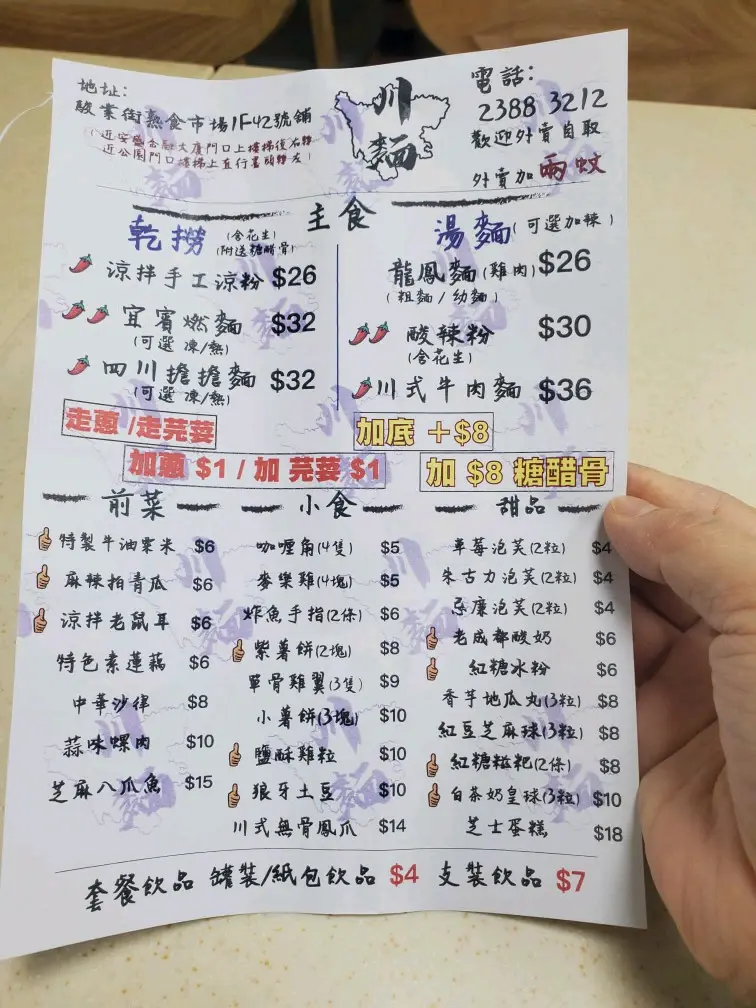 地址:
駿業街熟食市場1F42號舖
近公園門口樓梯上直行
川麵
電話:
2388 3212
歡迎外賣自取
外賣加兩蚊
主食
乾撈
(含花生)
(附送糖醋骨)
涼拌手工涼粉 $26
宜賓燃麵 $32
(可選 凍/熱)
四川擔擔麵 $32
(可選 凍/熱)
湯麵(可選加辣)
龍鳳麵(雞肉) $26
(粗麵/幼麵)
酸辣粉 $30
(含花生)
川式牛肉麵 $36
走蔥/走芫荽
加底 +$8
加蔥 $1 / 加 芫荽 $1
加 $8 糖醋骨
前菜
特製牛油粟米 $6
麻辣拍青瓜 $6
涼拌老鼠耳 $6
特色素蓮藕 $6
中華沙律 $8
蒜味螺肉 $10
芝麻八爪魚 $15
小食
咖喱角(4隻) $5
麥樂雞(4塊) $5
炸魚手指(2條) $6
紫薯餅(2塊) $8
單骨雞翼(3隻) $9
小薯餅(3塊) $10
鹽酥雞粒 $10
狼牙土豆 $10
川式無骨鳳爪 $14
甜品
草莓泡芙(2粒) $4
朱古力泡芙(2粒) $4
忌廉泡芙(2粒) $4
老成都酸奶 $6
紅糖冰粉 $6
香芋地瓜丸(3粒) $8
紅豆芝麻球(3粒) $8
紅糖糍粑(2條) $8
白茶奶皇球(3粒) $10
芝士蛋糕 $18
套餐飲品 罐裝/紙包飲品 $4 支裝飲品 $7